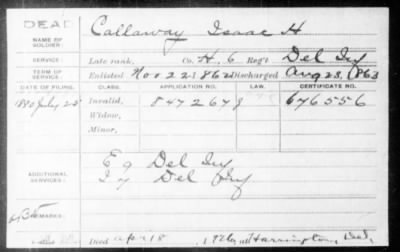 DEAD
NAME OF SOLDIER: Callaway Isaac H
SERVICE: Late rank, Co. H, 6 Reg't Del Inf
TERM OF SERVICE: Enlisted Nov 22 1862 Discharged Aug 23, 1863
DATE OF FILING. CLASS. APPLICATION NO. LAW. CERTIFICATE NO.
1880 July 25 Invalid, 847267 676556
Widow,
Minor,
ADDITIONAL SERVICES: E 9 Del Inf
I 7 Del Inf
REMARKS:
Died Apr 18, at Harrington, Del.